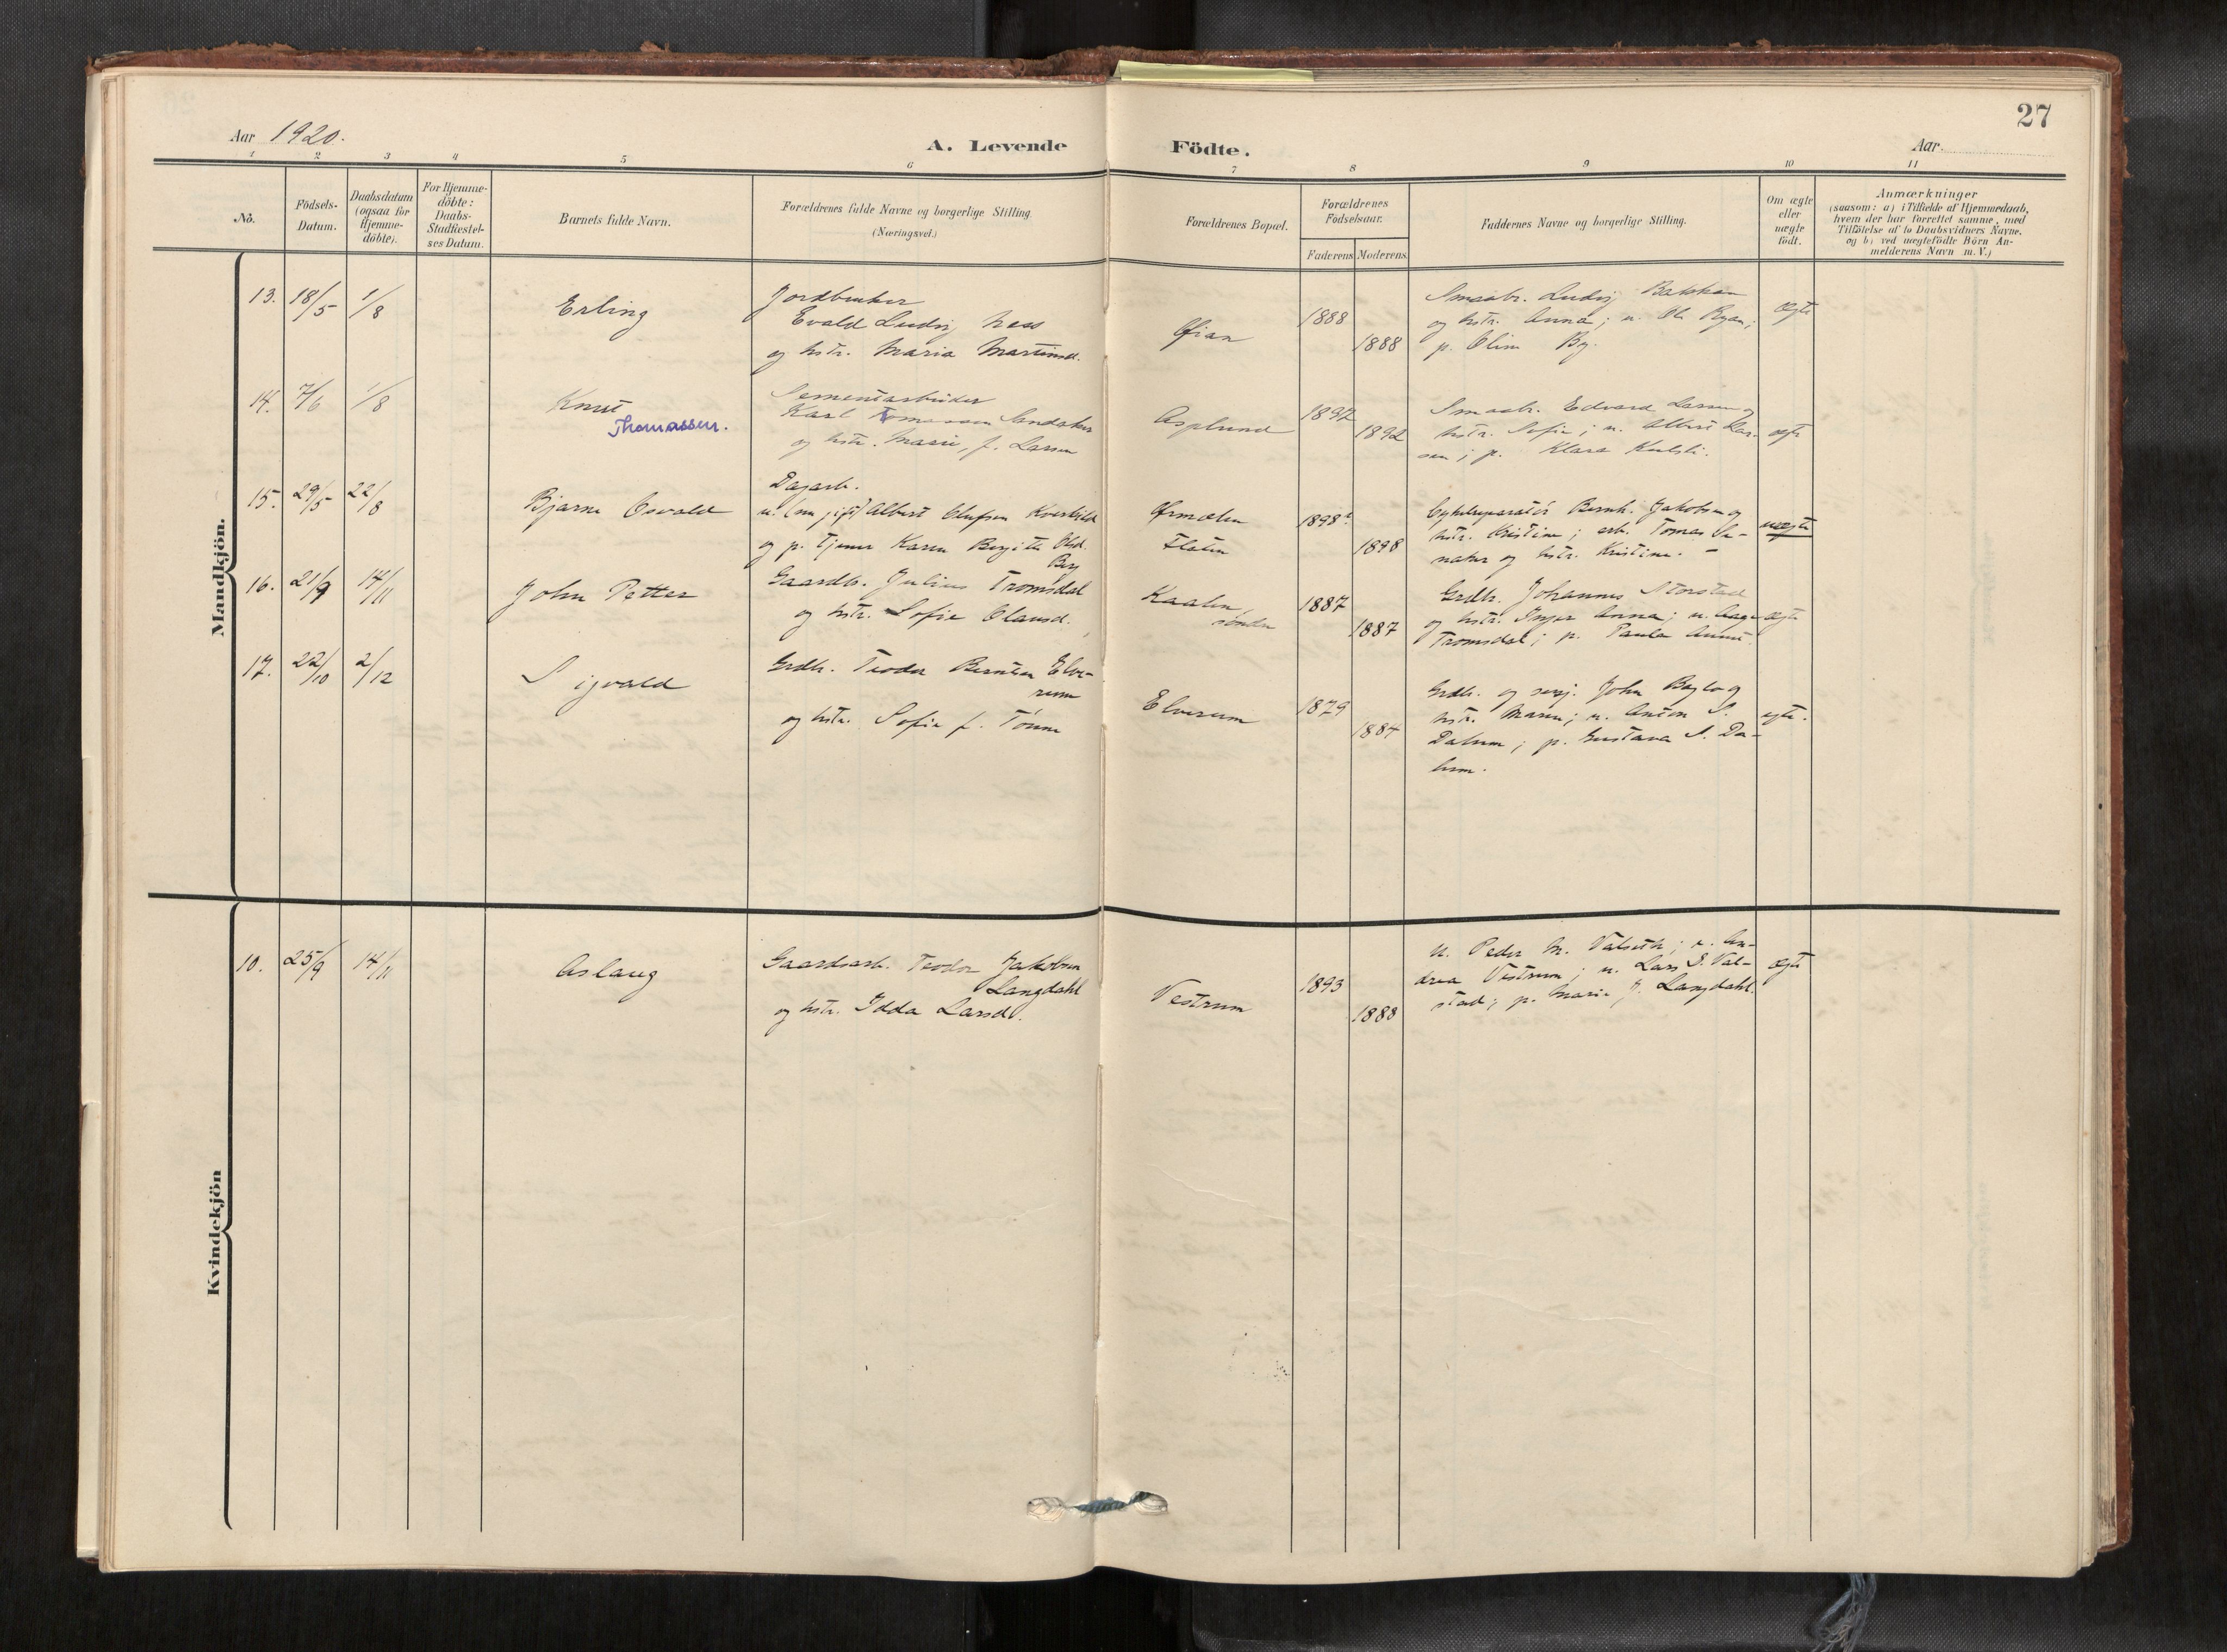 27
Aar 1920.
A. Levende Födte.
Aar.
1 2 3 4 5 6 7 8 9 10 11
No.
Födsels-
Datum.
Daabsdatum
(ogsaa for
Hjemme-
döbte).
For Hjemme-
döbte:
Daabs-
Stadfæstel-
ses Datum.
Barnets fulde Navn.
Forældrenes fulde Navne og borgerlige Stilling.
(Næringsvei.)
Forældrenes Bopæl.
Forældrenes
Födselsaar.
Faderens Moderens.
Faddernes Navne og borgerlige Stilling.
Om ægte
eller
uægte
födt.
Anmærkninger
(saasom: a) i Tilfælde af Hjemmedaab,
hvem der har forrettet samme, med
Tilföielse af to Daabsvidners Navne.
og b) ved uægtefödte Börn An-
melderens Navn m. V.)
Mandkjön.
13. 18/5 1/8
Erling
Jordbruker
Evald Ludvig Næss
og hstr. Maria Martinsd.
1888
1888
Smaabr. Ludvig Bakken
og hstr. Anna; u. Ole Ryan;
p. Oline By.
ægte
14. 7/6 1/8
Knut
Thomassen.
Sementarbeider
Karl Tomassen Sandaker
og hstr. Marie, f. Larsen
Asplund
1897
1892
Smaabr. Edvard Larsen og
hstr. Sofie; u. Albert Lar-
sen; p. Klara
ægte
15. 29/5 22/8
Bjarne Osvald
Dagarb.
u. (nu gift) Albert Olufsen Kverkild
og p. tjener Karen Bergitte Olsd.
By
Ørmelen
Flaten
1898
1898
Cykelreparatör Bernh. Jakobsen og
hstr. Kristine; arb. Tomas Se-
natur og hstr. Kristine. -
uægte
16. 21/9 14/11
John Petter
Gaardbr. Julius Tromsdal
og hstr. Sofie Olausd.
Kaalen,
söndre
1887
1887
Grdbr. Johannes Storstad
og hstr. Inger Anna; u. Aage
Tromsdal; p. Paula
ægte
17. 22/10 2/12
Sigvald
Grdbr. Teodor Berntsen Elve-
rum
og hstr. Sofie f. Tönne
Elverum
1879
1884
Grdbr. og sersj. John Baglo og
hstr. Maren; u. Anton S.
Dalum; p. Gustava S. Da-
lum.
ægte.
Kvindekjön
10. 25/9 14/11
Aslaug
Gaardsarb. Teodor Jakobsen
Langdahl
og hstr. Idda Larsd.
Vestrum
1893
1888
u. Peder M. Valseth; u. An-
drea Vestrum; u. Lars S. Val-
stad; p. Marie J. Langdahl.
ægte